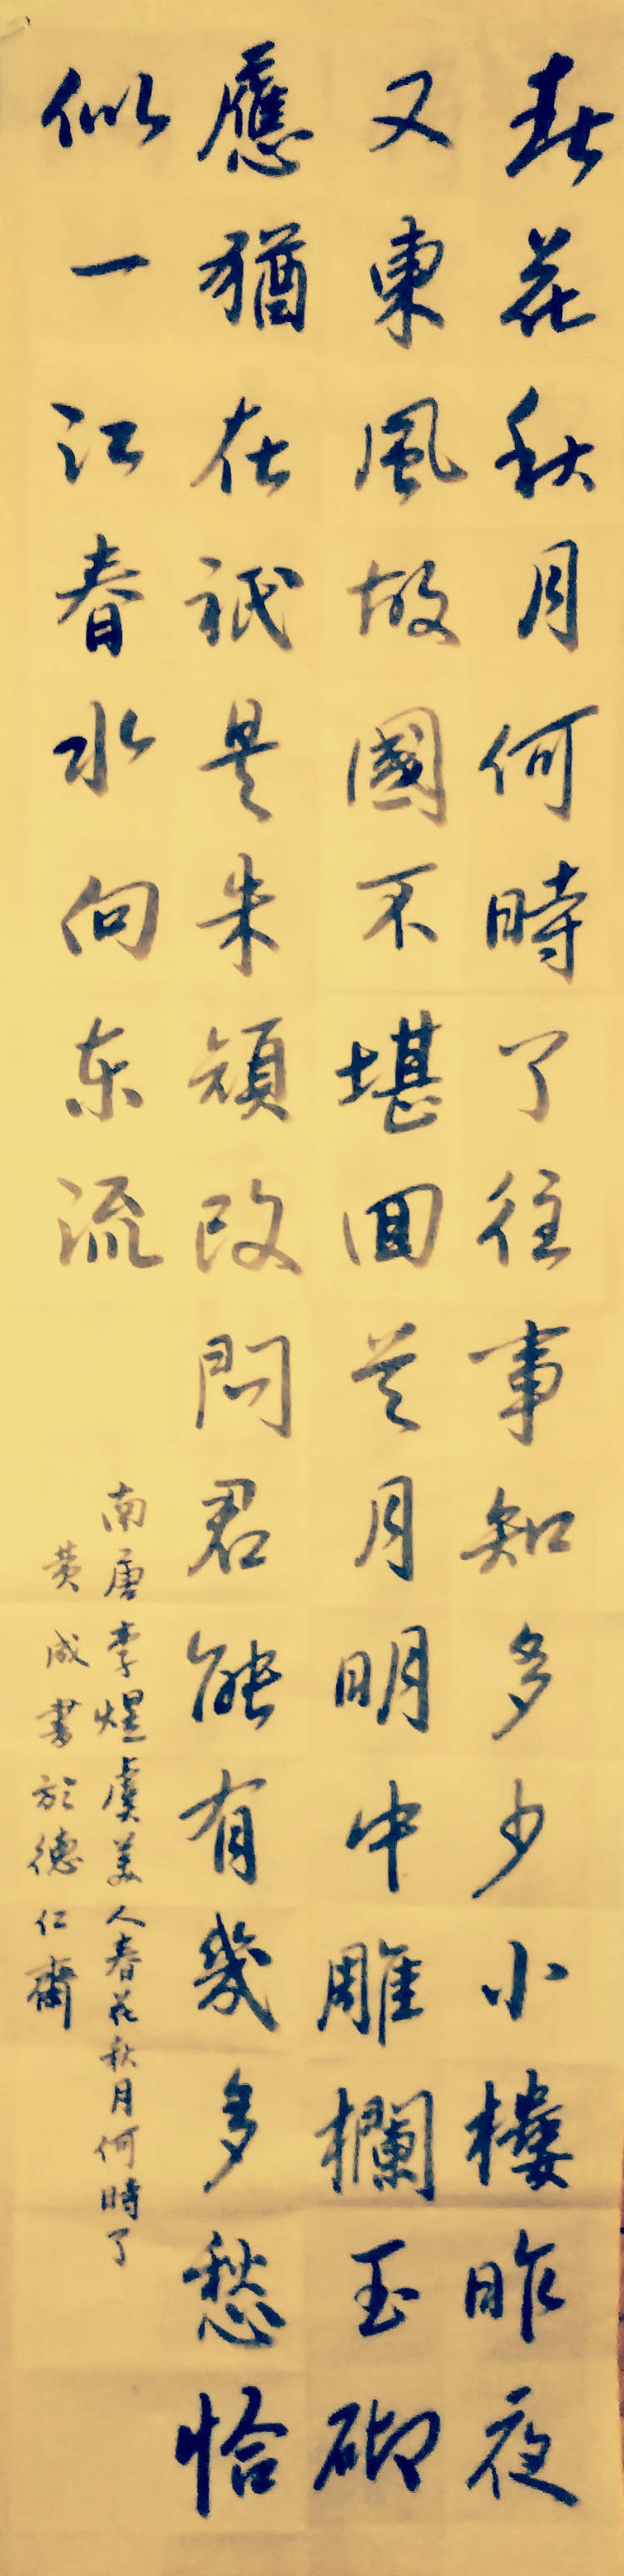 春花秋月何時了往事知多少小樓昨夜
又東風故國不堪回首月明中雕欄玉砌
應猶在祗是朱顏改問君能有幾多愁恰
似一江春水向东流
南唐李煜虞美人春花秋月何時了
黄成書於德仁齋